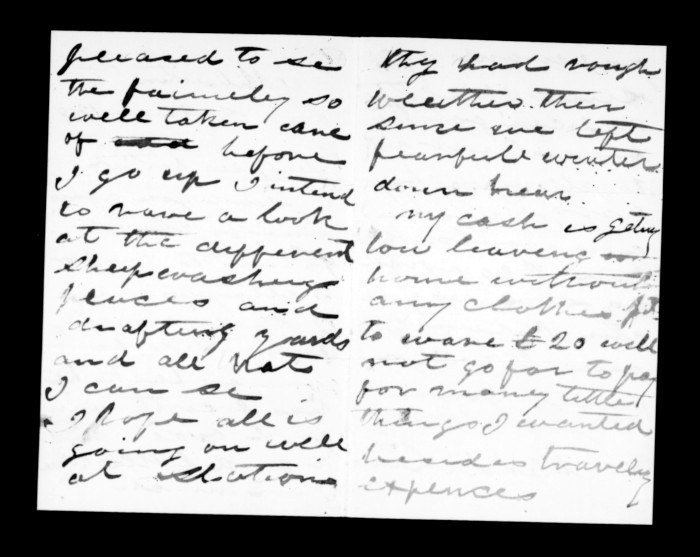 pleased to se
the faimely so
well taken care
of before
I go up I intend
to have a look
at the different
sheepwashing
pences and
drafting yards
and all hots
I can se
I hope all is
going on well
at station
thy had rough
weather then
since we left
fearfull winter
down hear
my cash is geting
low leaveng
home without
any clothes fit
to ware £20 will
not go far to pay
for maney little
things I wanted
besides traveling
expences